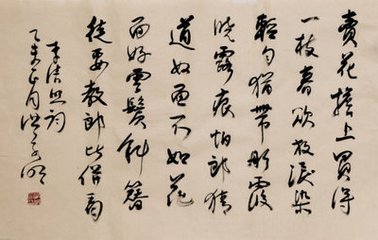 賣花擔上買得
一枝春欲放淚染
輕勻猶帶彤霞
曉露痕怕郎猜
道奴面不如花
面好雲鬢斜簪
徒要教郎比併看
李清照詞
乙未